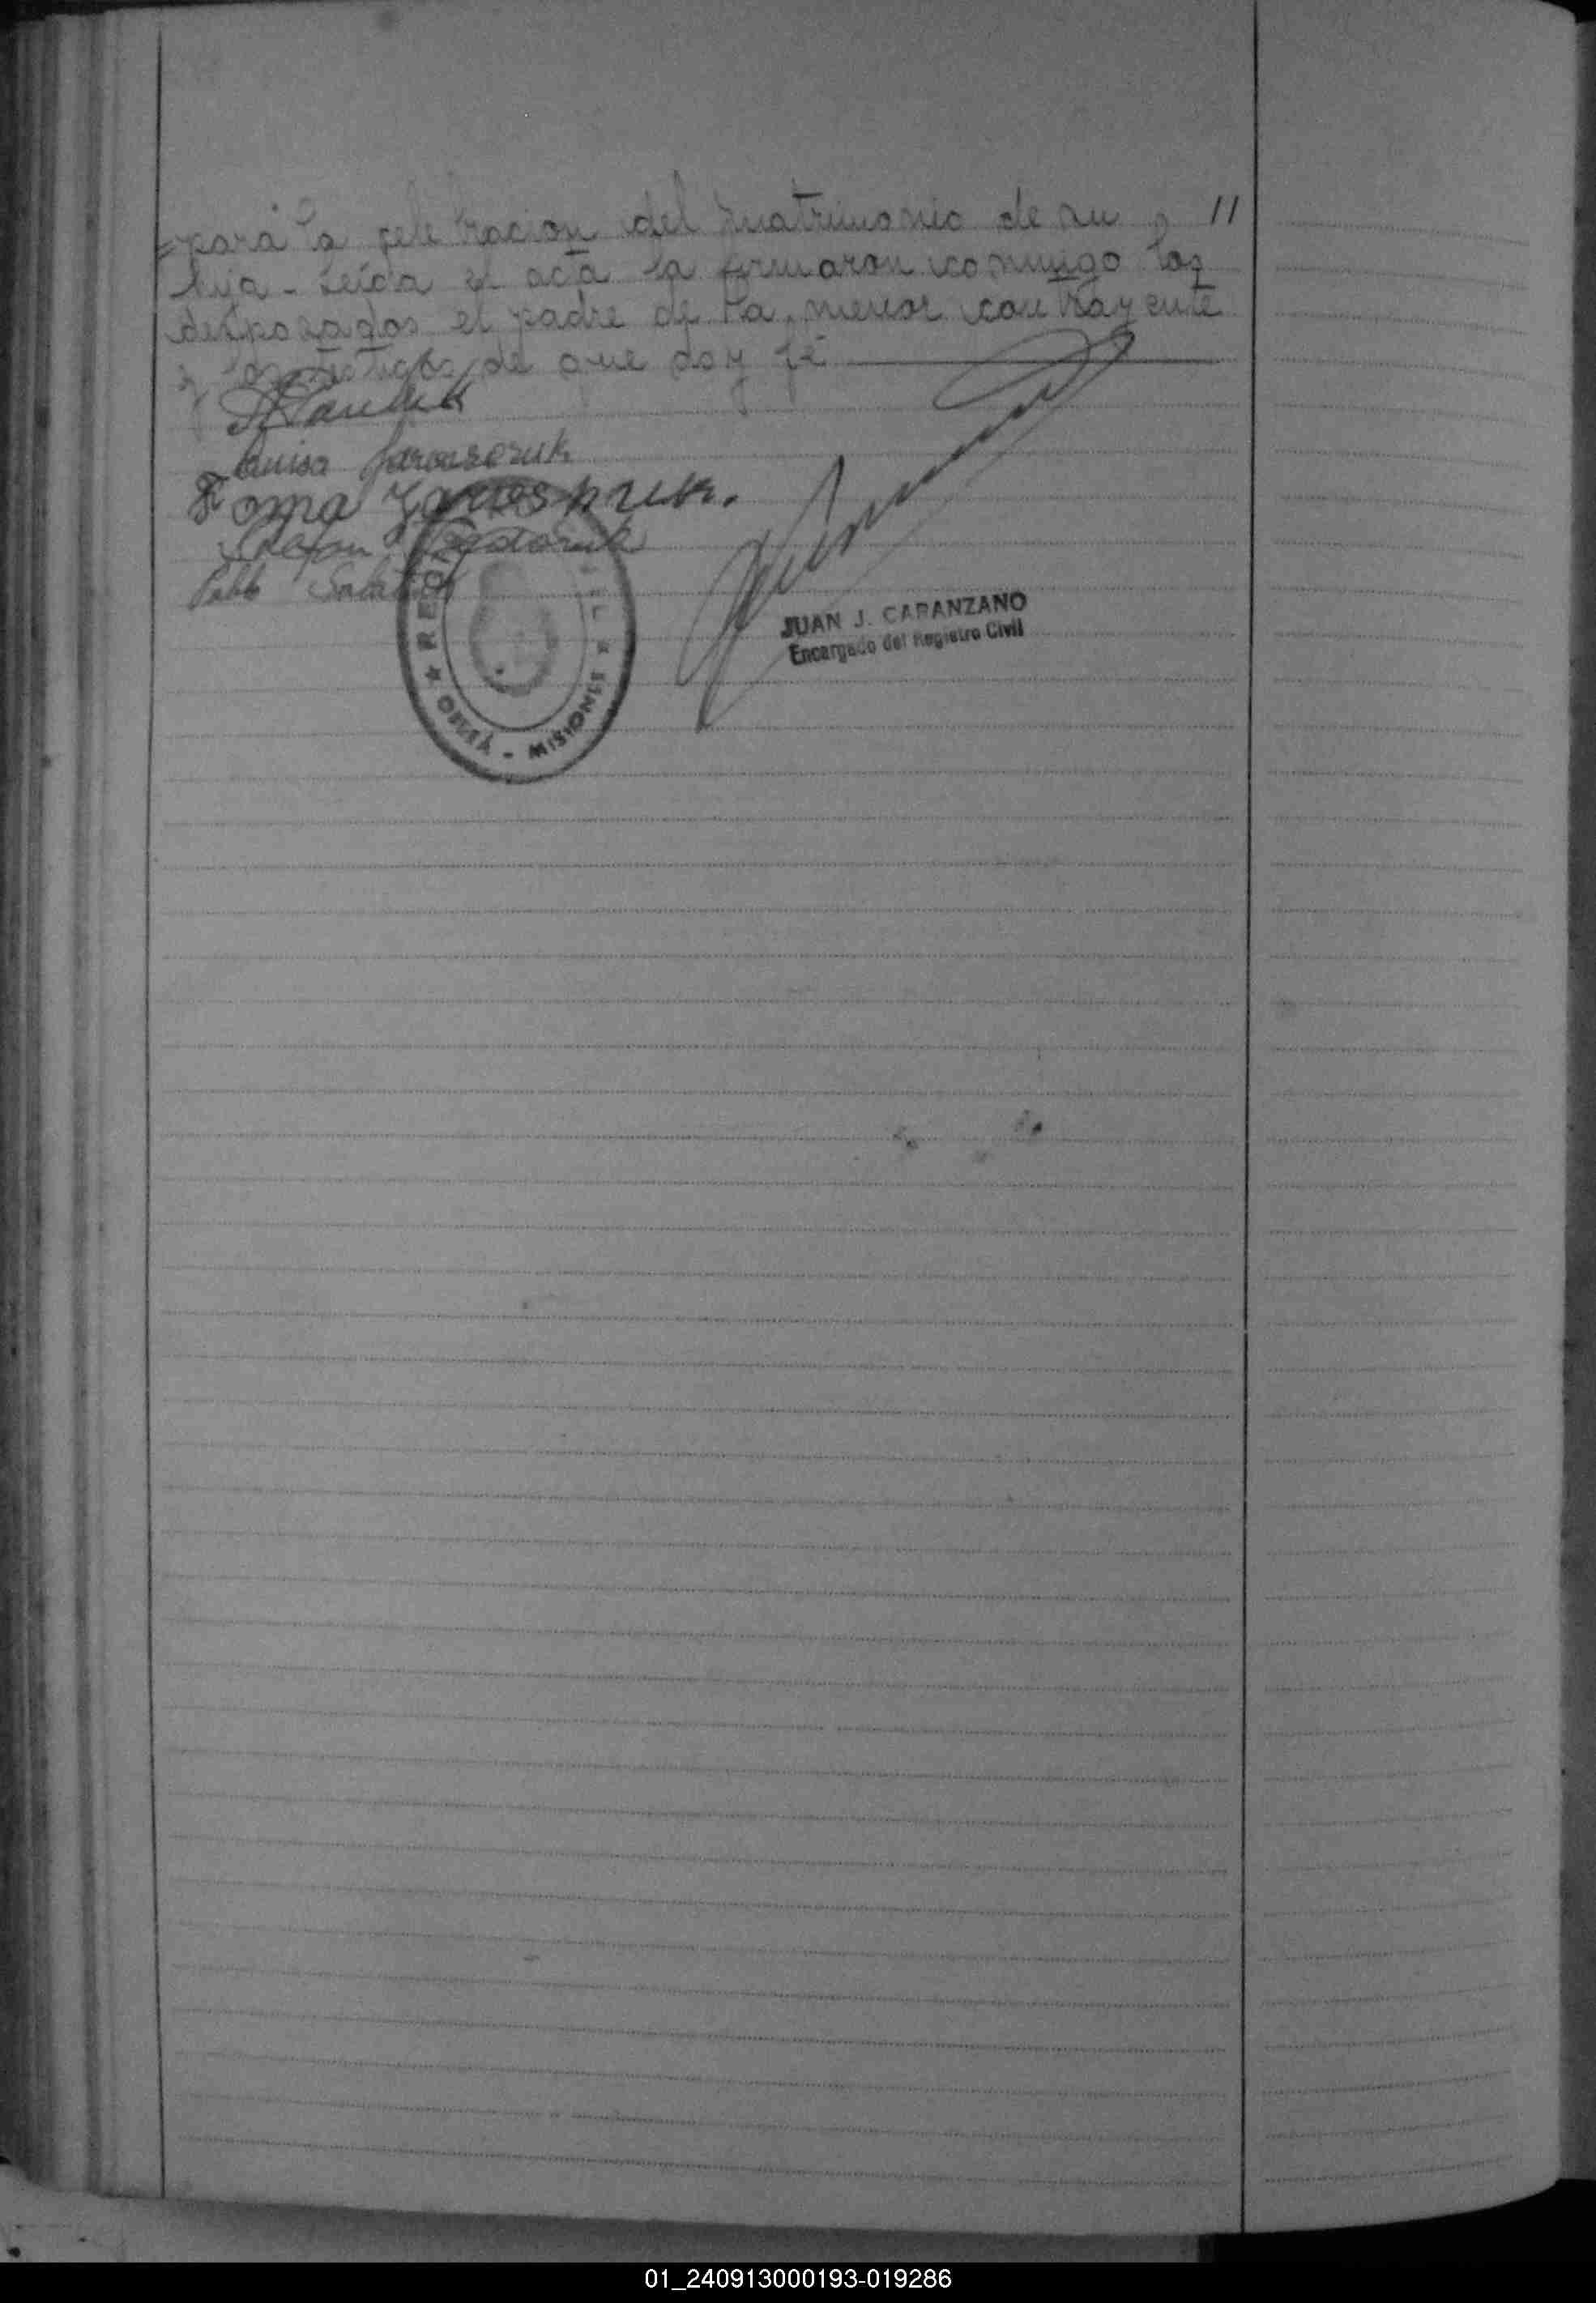 =para la celebracion del matrimonio de su 11
hija - Leída el acta la firmaron conmigo los
desposados el padre de la menor contrayente
y los testigos de que doy fé
Luisa Jaroszczuk
Foma
Stefan
Pablo
JUAN J. CARANZANO
Encargado del Registro Civil
OBERÁ - MISIONES
01_240913000193-019286